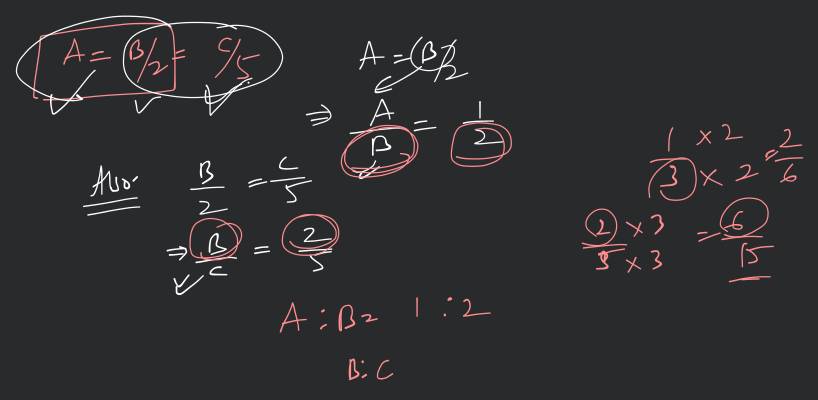 A = B/2 = C/5
A = B/2
⇒ A/B = 1/2
Also: B/2 = C/5
⇒ B/C = 2/5
A : B = 1 : 2
B : C
1 × 2 / 3 × 2 = 2/6
2 × 3 / 5 × 3 = 6/15